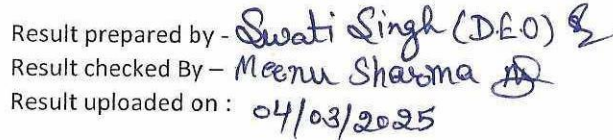 Result prepared by - Swati Singh (D.E.O)
Result checked By – Meenu Sharma
Result uploaded on : 04/03/2025